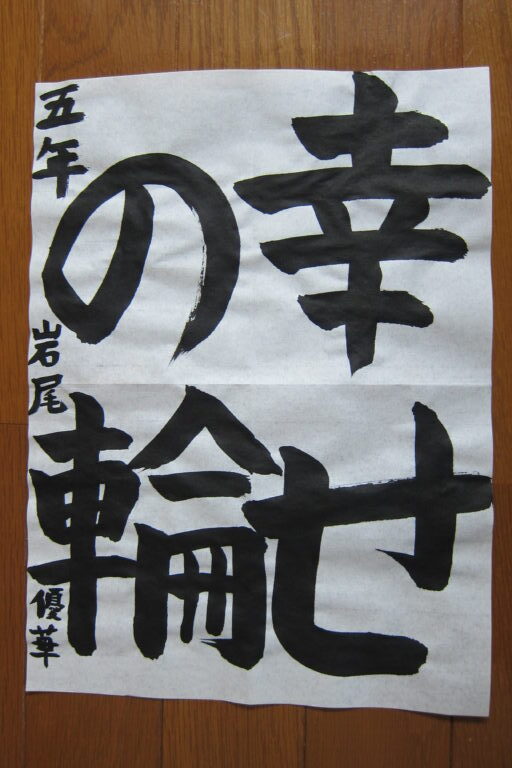 幸せ
の輪
五年 岩尾 優華